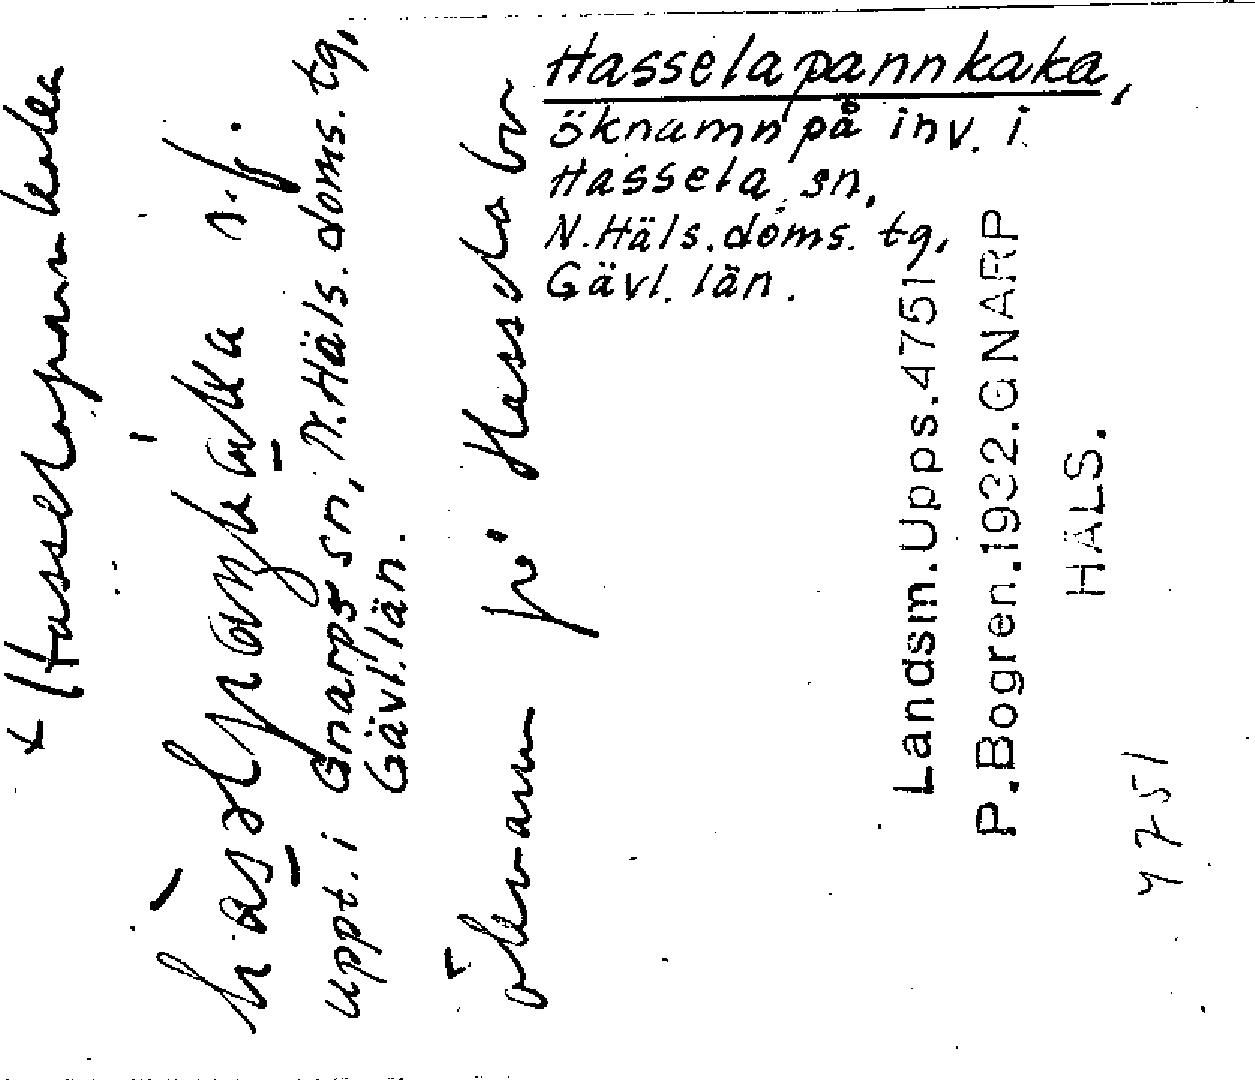 Hasselapannkaka,
öknamn på inv. i
Hassela sn,
N. Häls. doms. tg,
Gävl. län.
+ Hasselapannkaka
s. f.
uppt. i Gnarps sn, N. Häls. doms. tg,
Gävl. län.
öknamn på Hasselabor
Landsm. Upps. 4751
P. Bogren. 1932. GNARP
HÄLS.
4751